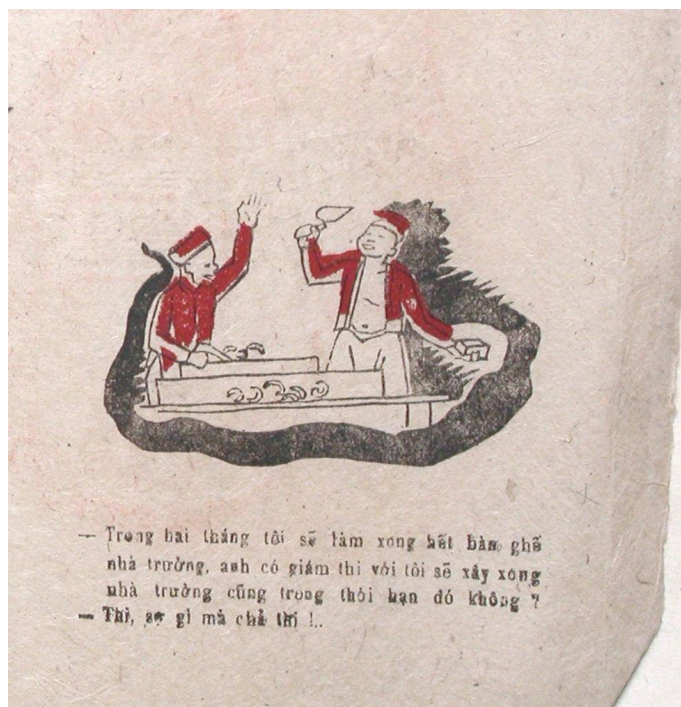 — Trong hai tháng tôi sẽ làm xong hết bàn ghế
nhà trường, anh có giám thi với tôi sẽ xây xong
nhà trường cũng trong thời hạn đó không ?
— Thì, sợ gì mà chả thi !..